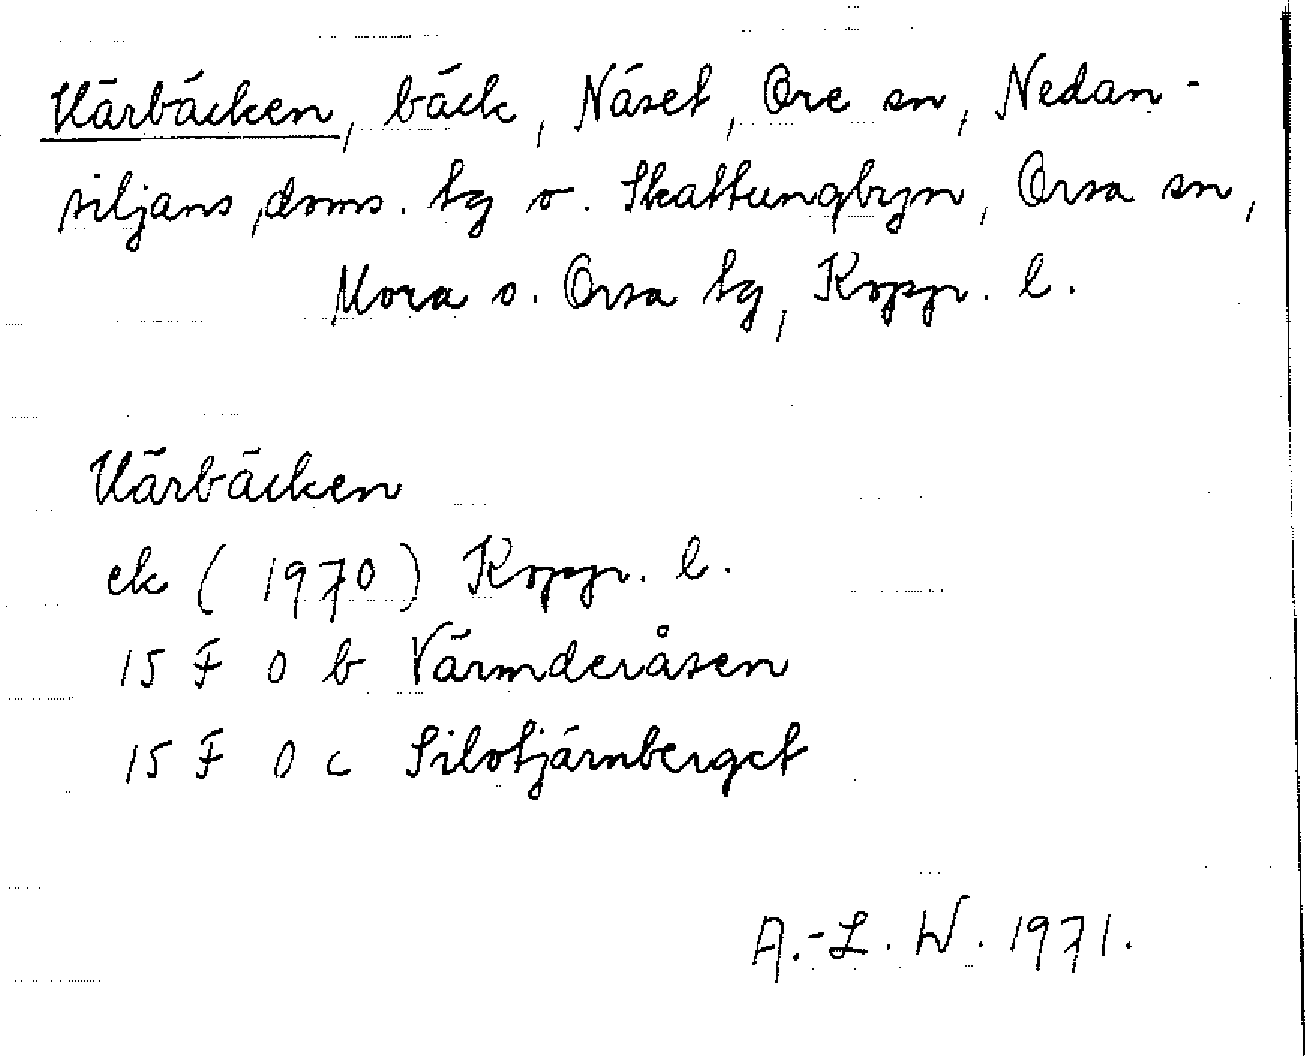 Härbäcken, bäck, Näset, Ore sn, Nedan-
siljans doms. tg o. Skattungbyn, Orsa sn,
Mora o. Orsa tg, Kopp. l.
Härbäcken
ek (1970) Kopp. l.
15 F 0 b Värmderåsen
15 F 0 c Silotjärnberget
A.-L. W. 1971.